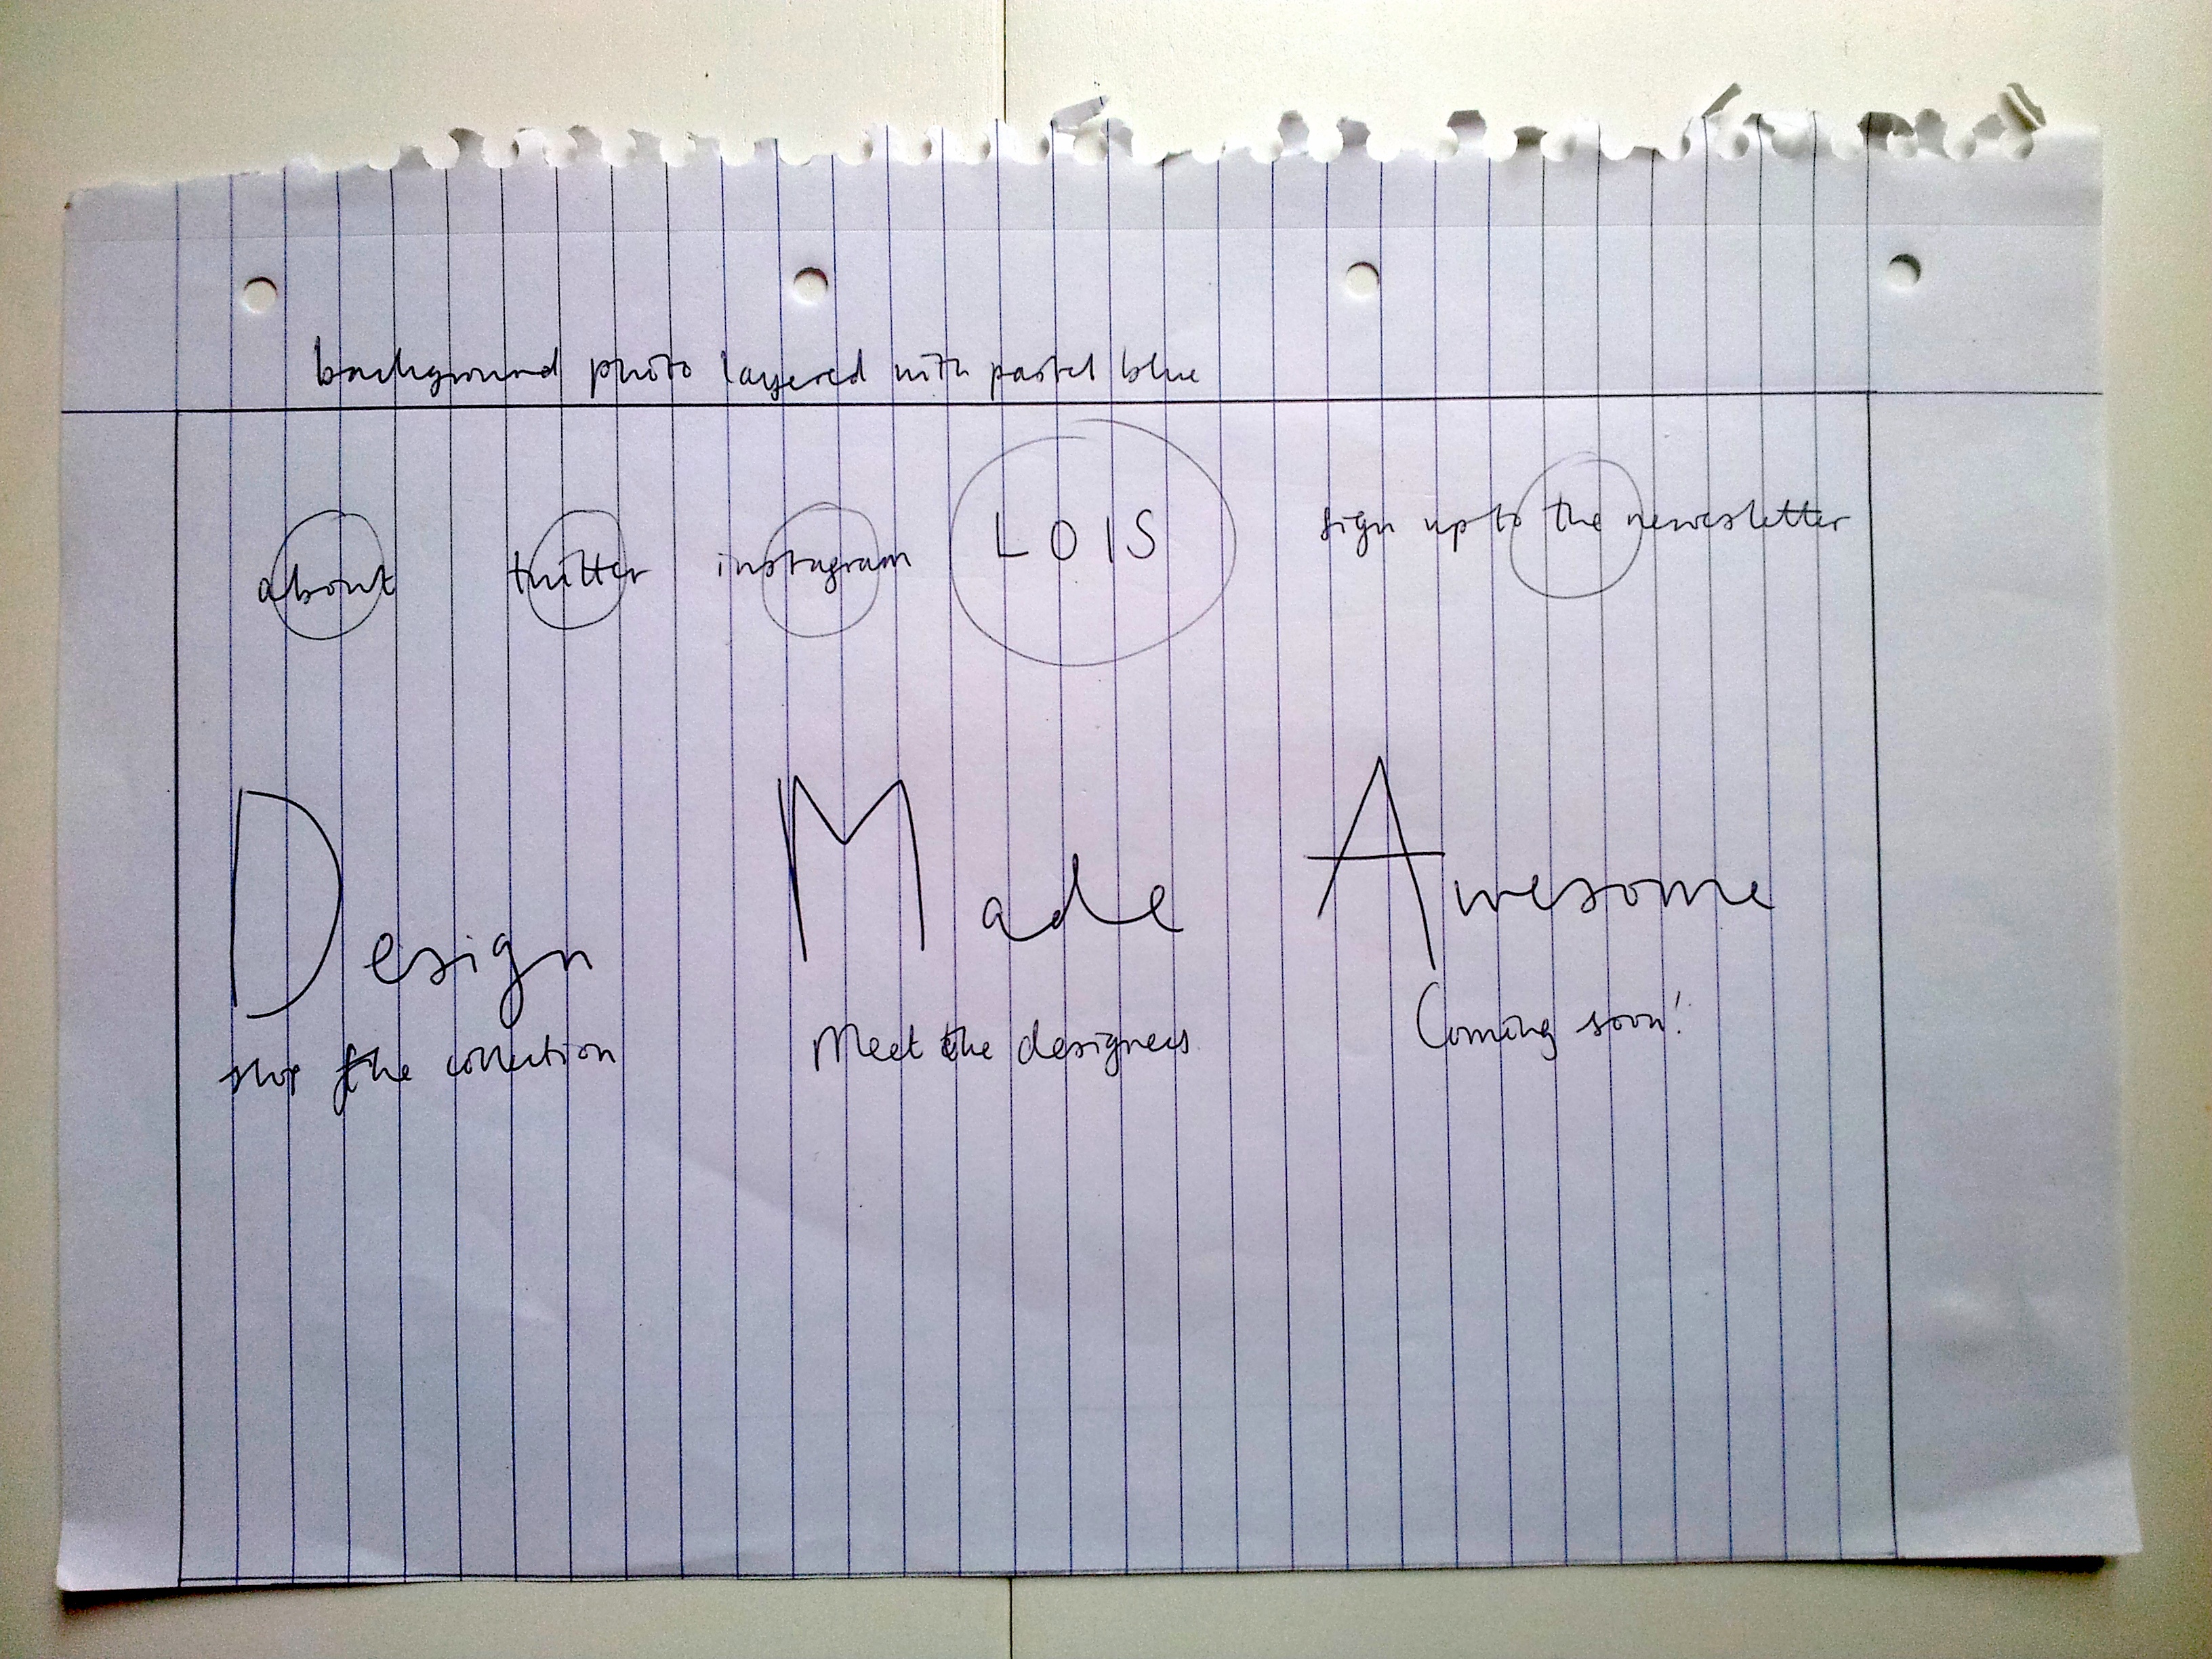 background photo layered with pastel blue
about twitter instagram LOIS sign up to the newsletter
Design Made Awesome
shop the collection Meet the designers Coming soon!